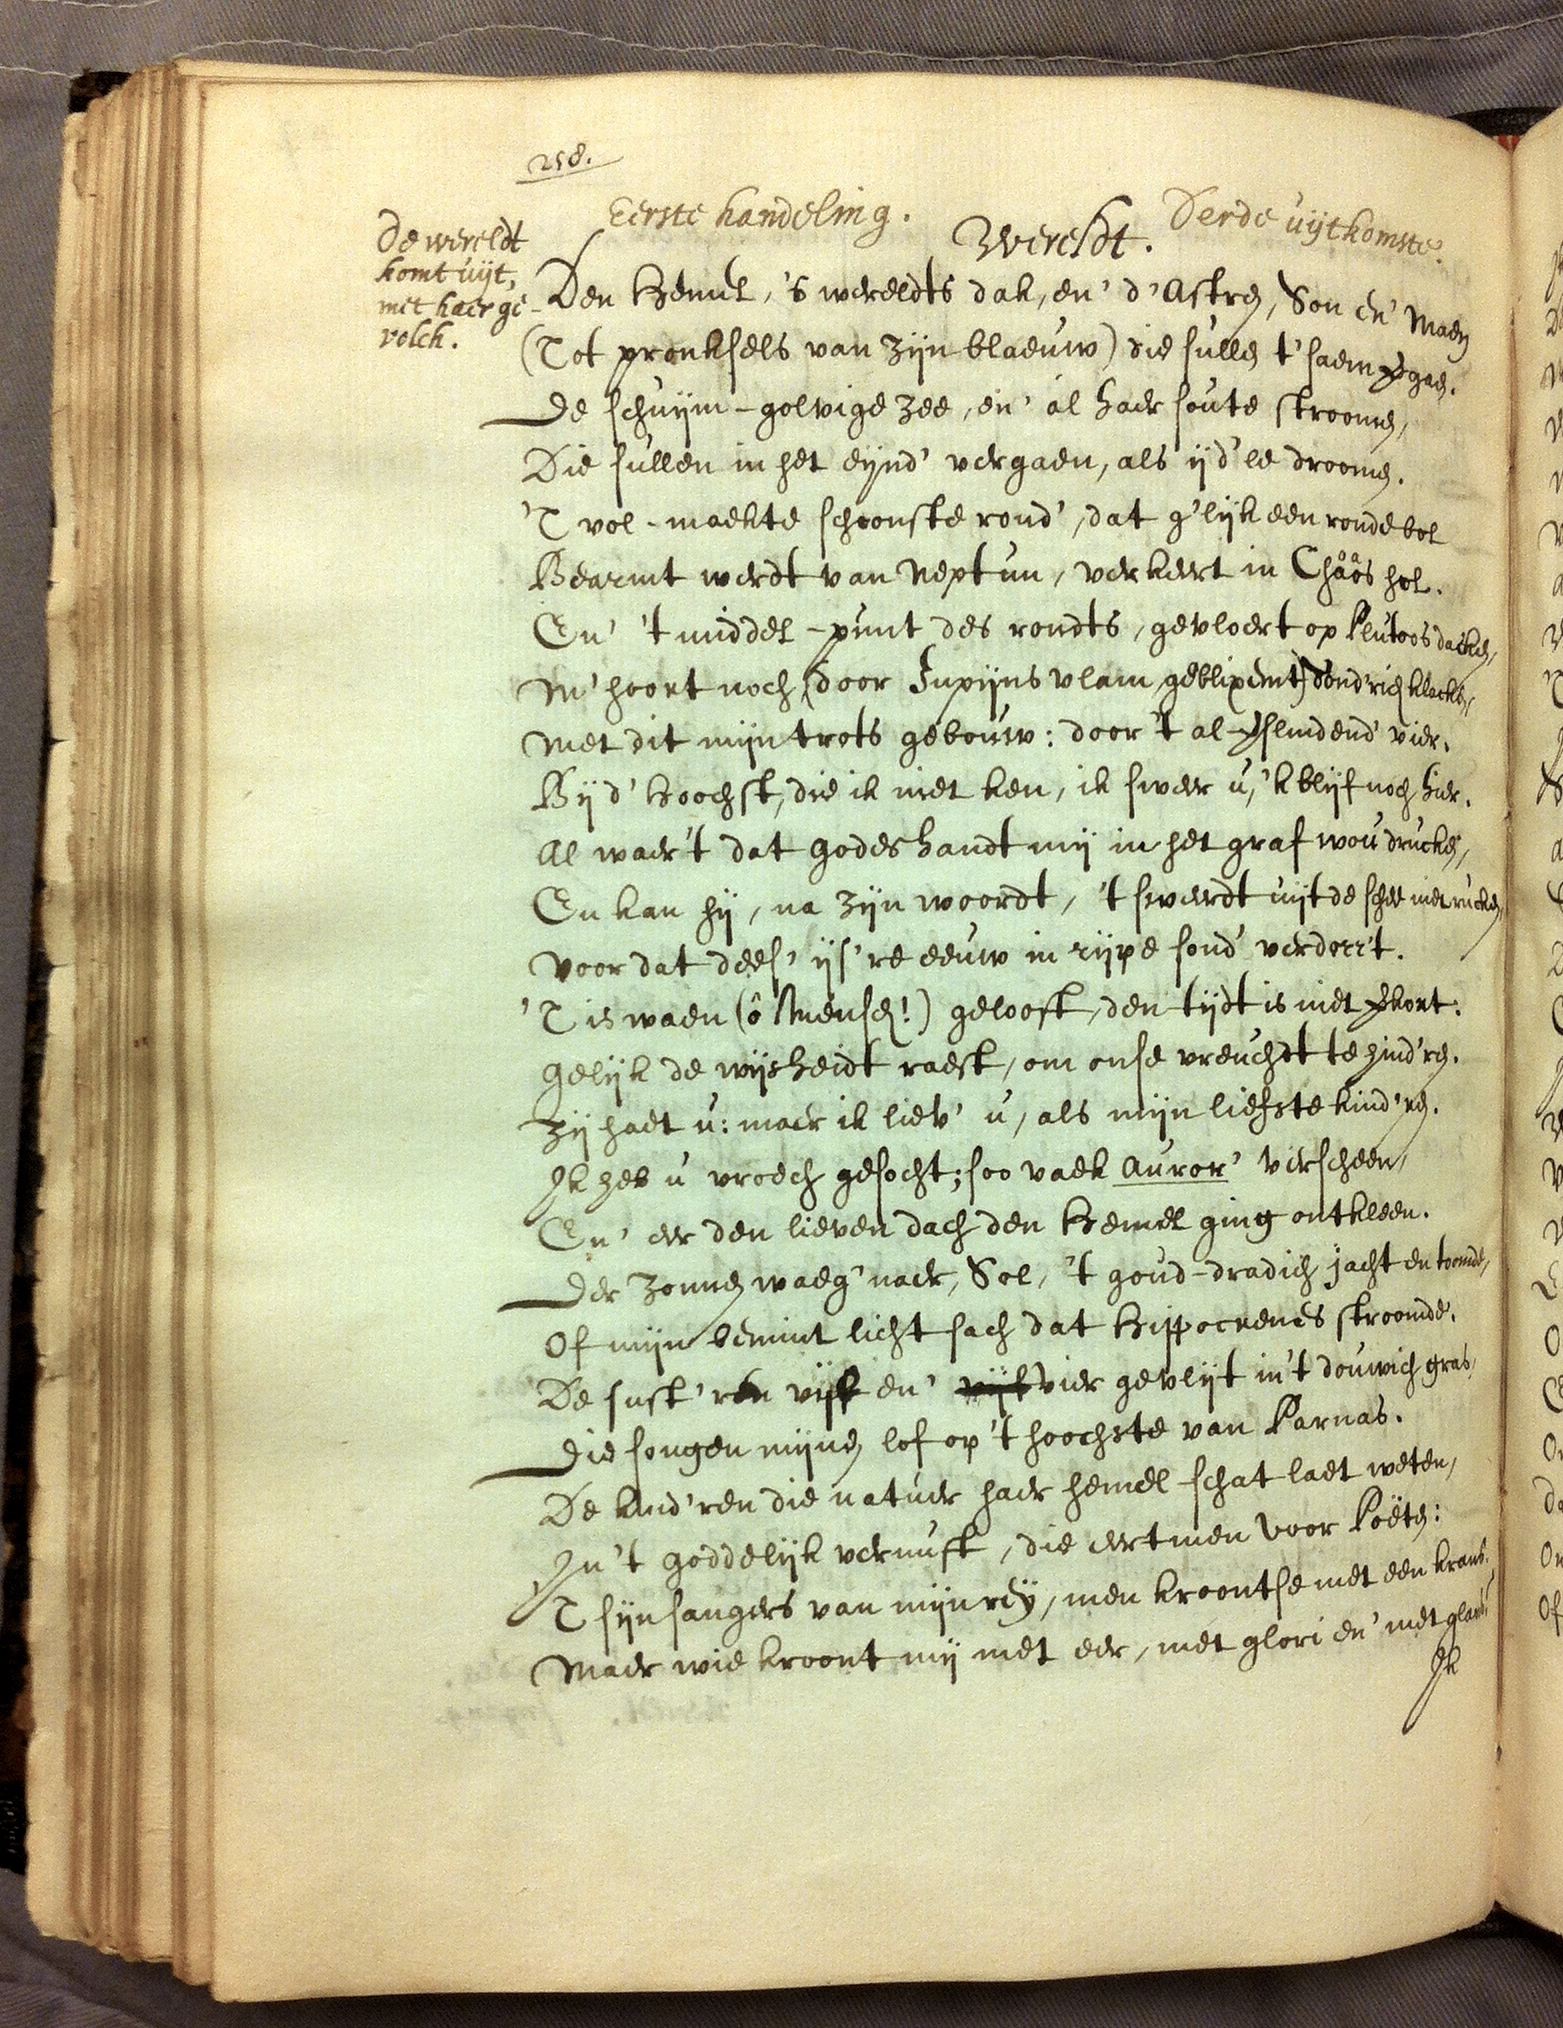 258.
Eerste handeling. Derde uijtkomste.
Wereldt.
De wereldt
komt uijt,
met haer ge-
volch.
Den Hemel, 's wereldts dak, en' d'Astren, Son en' Maen
(Tot pronksels van zijn blaeuw) die sullen t'saem vergaen.
De schuijm-golvige zee, en' al haer soute stroomen,
Die sullen in het eijnd' vergaen, als ijd'le droomen.
'T vol-maekte schoonste rond', dat g'lijk een ronde bol
Bearmt werdt van Neptun, verkeert in Chäös hol.
En' 't middel-punt des rondts, gevloert op Plutoos dacken,
M' hoort noch (door Jupijns vlam geblixemt) dond'rich klacken,
Met dit mijn trots gebouw: door 't al-verslindend' vier.
Bij d' Hoochst, die ik niet ken, ik sweer u, 'k blijf noch hier.
Al waer't dat Godes handt mij in het graf wou drucken,
En kan hij, na zijn woordt, 't sweerdt uijt de schee niet rucken,
Voor dat dees' ijs're eeuw in rijpe sond' verdorr't.
'T is waen (ô Mensen!) gelooft, den tijdt is niet verkort.
Gelijk de wijsheidt raest, om onse vreuchdt te hind'ren.
Zij haet u: maer ik liev' u, als mijn liefste kind'ren.
Ik heb u vroech gesocht; soo vaek Auror' verscheen,
En' eer den lieven dach den Hemel ging ontkleen.
Der zonnen waeg' naer, Sol, 't goud-dradich jacht en toomde,
Of mijn bemint licht sach dat Hippocrenes stroomde.
De sust'ren vijf en' vijf vier gevlijt in't douwich gras,
Die songen mijnen lof op 't hoochste van Parnas.
De kind'ren die natuer haer hemel-schat laet weten,
In 't goddelijk vernuft, die eert men voor Poëten:
T sijn sangers van mijn reij, men kroontse met een krans.
Maer wie kroont mij met eer, met glori en' met glans?
Ik